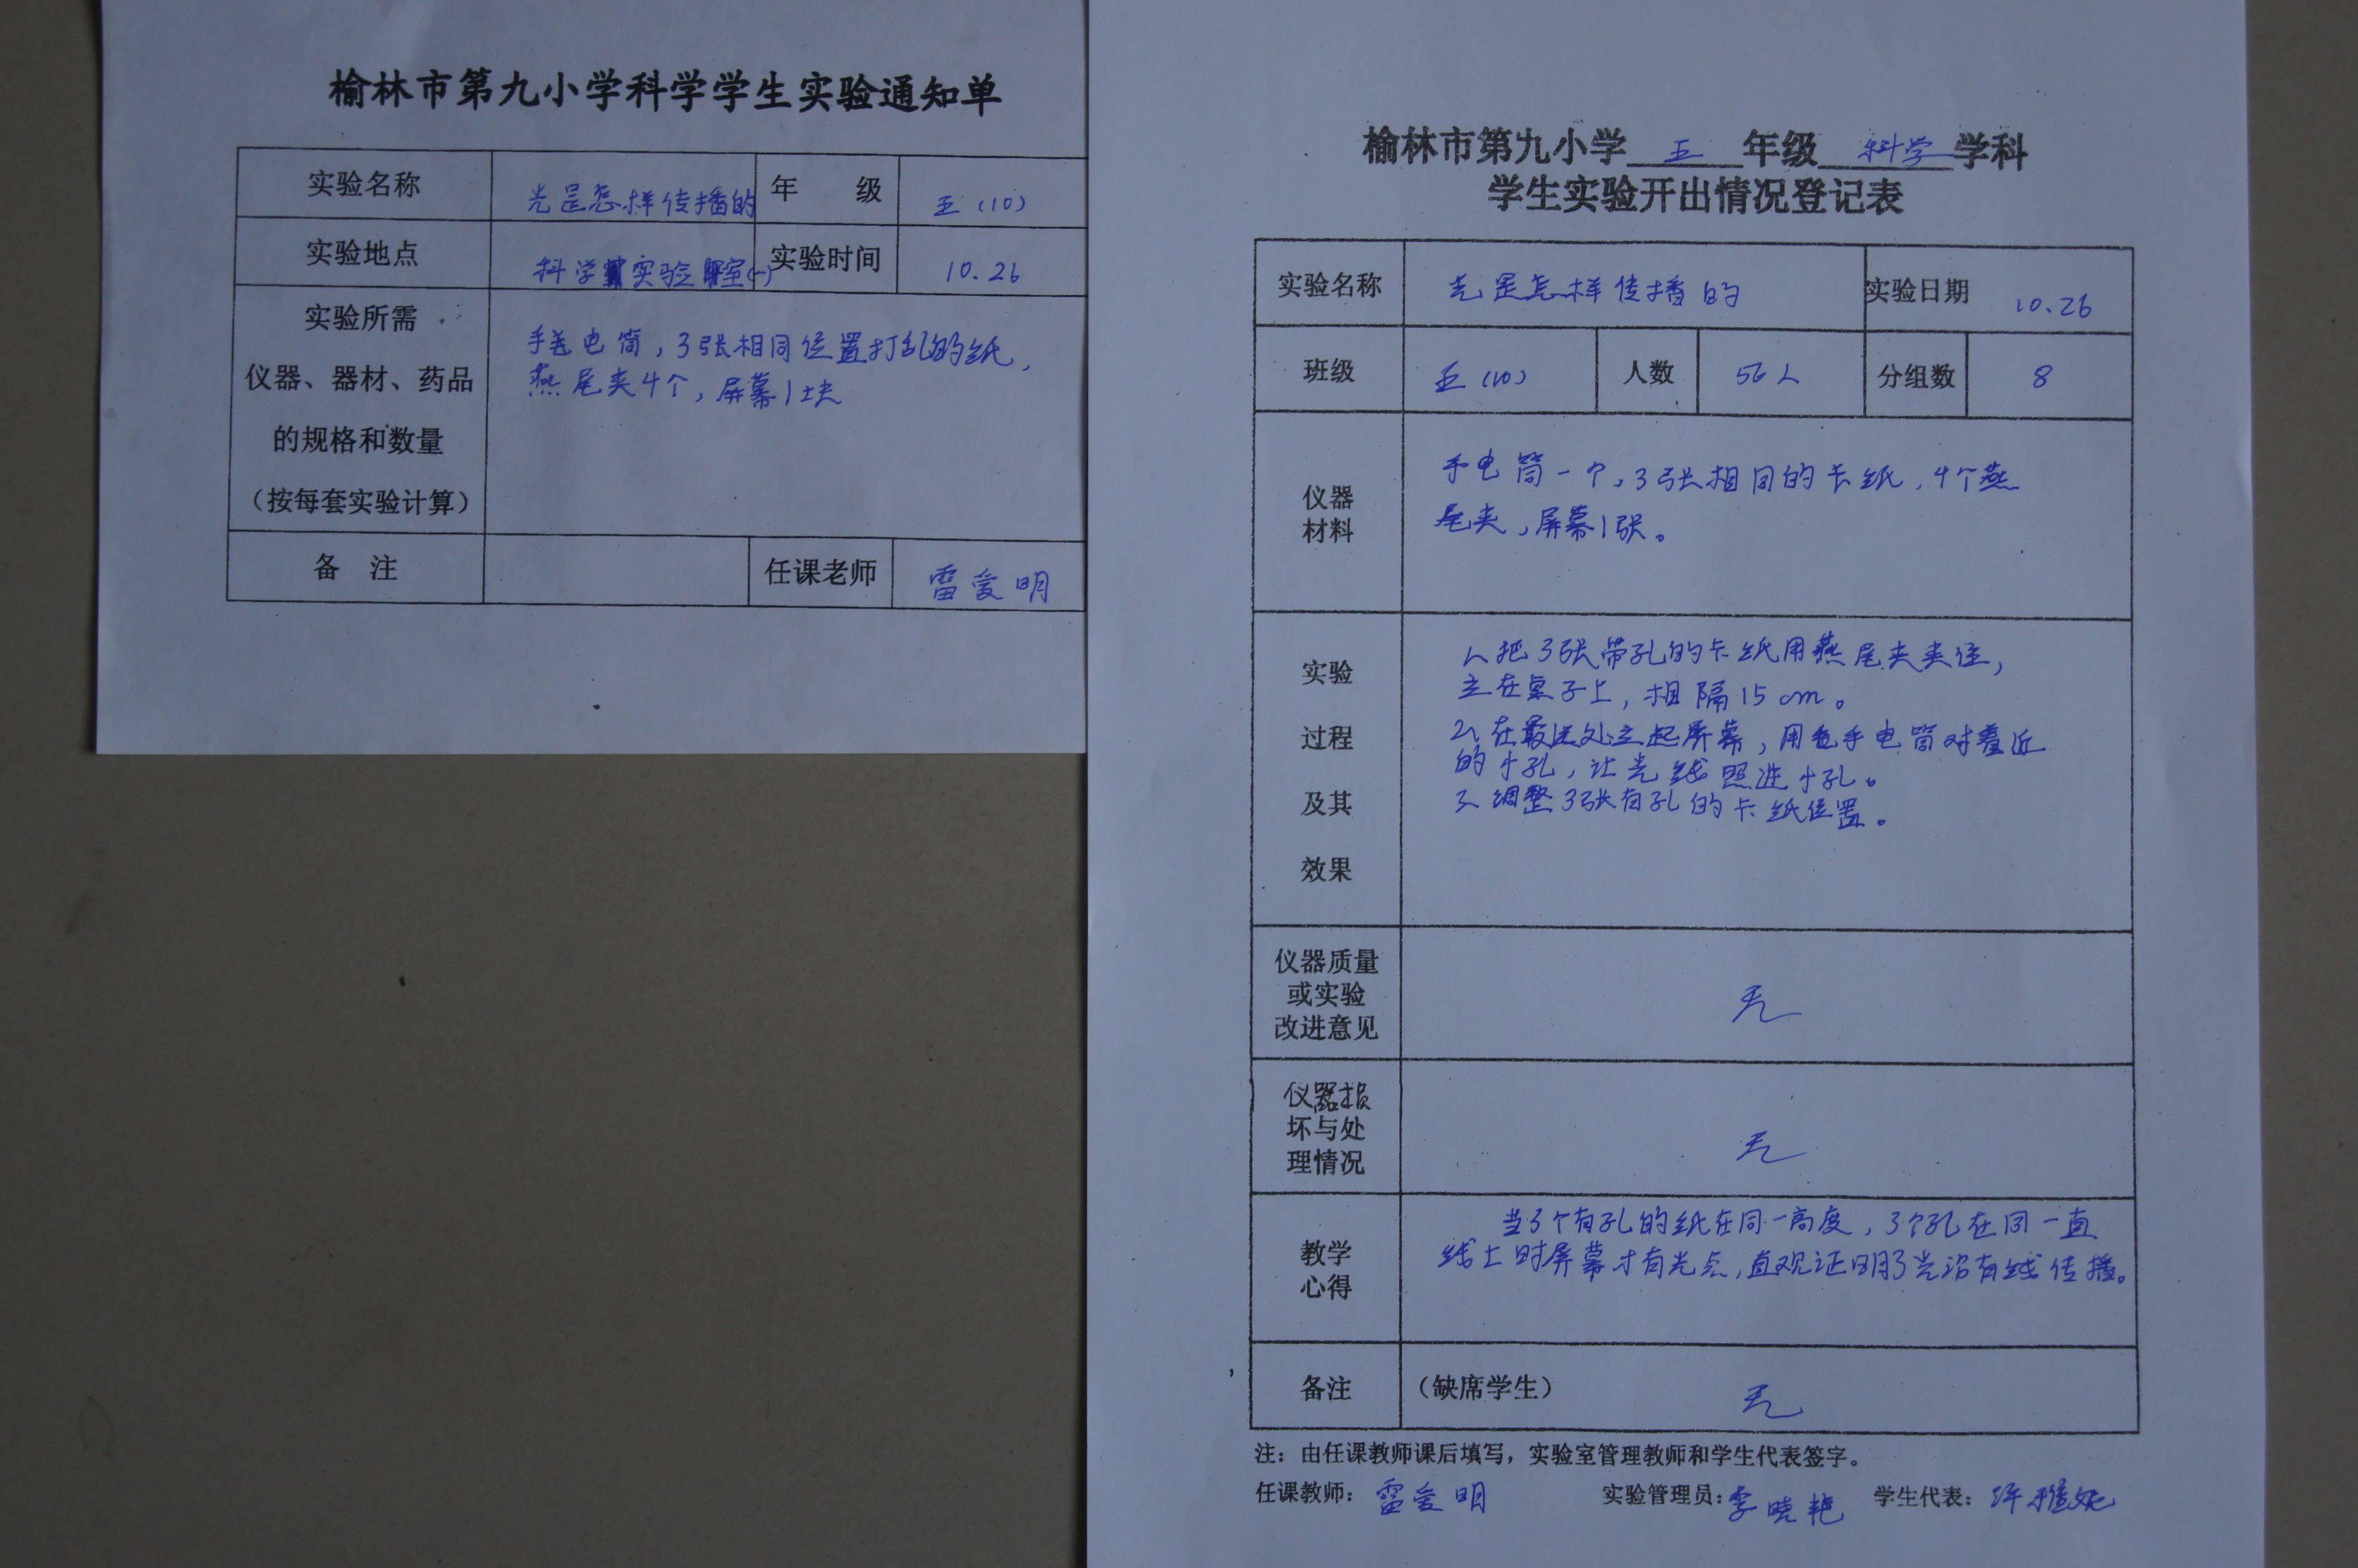 榆林市第九小学科学学生实验通知单
实验名称 光是怎样传播的 年 级 五(10)
实验地点 科学实验室(一) 实验时间 10.26
实验所需
仪器、器材、药品
的规格和数量
(按每套实验计算)
手电筒,3张相同位置打孔的纸,
燕尾夹4个,屏幕1块
备 注 任课老师 雷爱明
榆林市第九小学 五 年级 科学 学科
学生实验开出情况登记表
实验名称 光是怎样传播的 实验日期 10.26
班级 五(10) 人数 56人 分组数 8
仪器
材料
手电筒一个,3张相同的卡纸,4个燕
尾夹,屏幕1张。
实验
过程
及其
效果
1、把3张带孔的卡纸用燕尾夹夹住,
立在桌子上,相隔15cm。
2、在最远处立起屏幕,用手电筒对着近
的小孔,让光线照进小孔。
3、调整3张有孔的卡纸位置。
仪器质量
或实验
改进意见
无
仪器损
坏与处
理情况
无
教学
心得
当3个有孔的纸在同一高度,3个孔在同一直
线上时屏幕才有光点,直观证明了光沿有线传播。
备注 (缺席学生) 无
注:由任课教师课后填写,实验室管理教师和学生代表签字。
任课教师: 雷爱明 实验管理员: 李晓艳 学生代表: